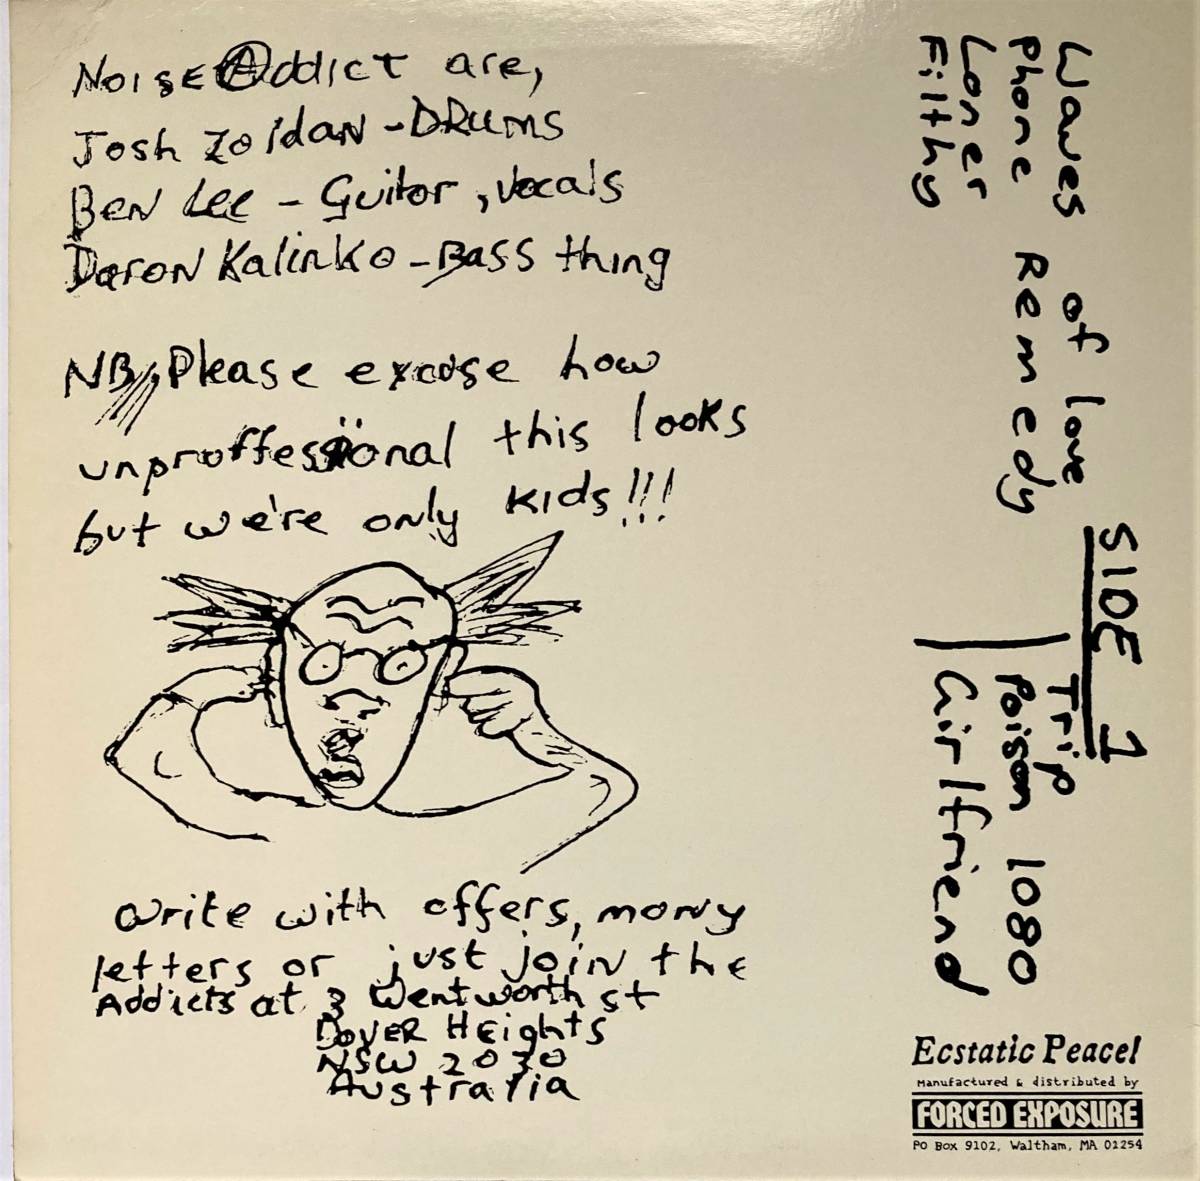 NOISE Addict are,
Josh Zoldan - DRUMS
Ben Lee - Guitar, vocals
Daron Kalinko - Bass thing
NB, Please excuse how
unproffessional this looks
but we're only kids!!!
write with offers, mony
letters or just join the
Addicts at 3 Wentworth st
Dover Heights
NSW 2030
Australia
SIDE 1
Waves of love
Phone Remedy
Loner
Filthy
Trip
Poison 1080
Girlfriend
Ecstatic Peace!
Manufactured & distributed by
FORCED EXPOSURE
PO Box 9102, Waltham, MA 02254